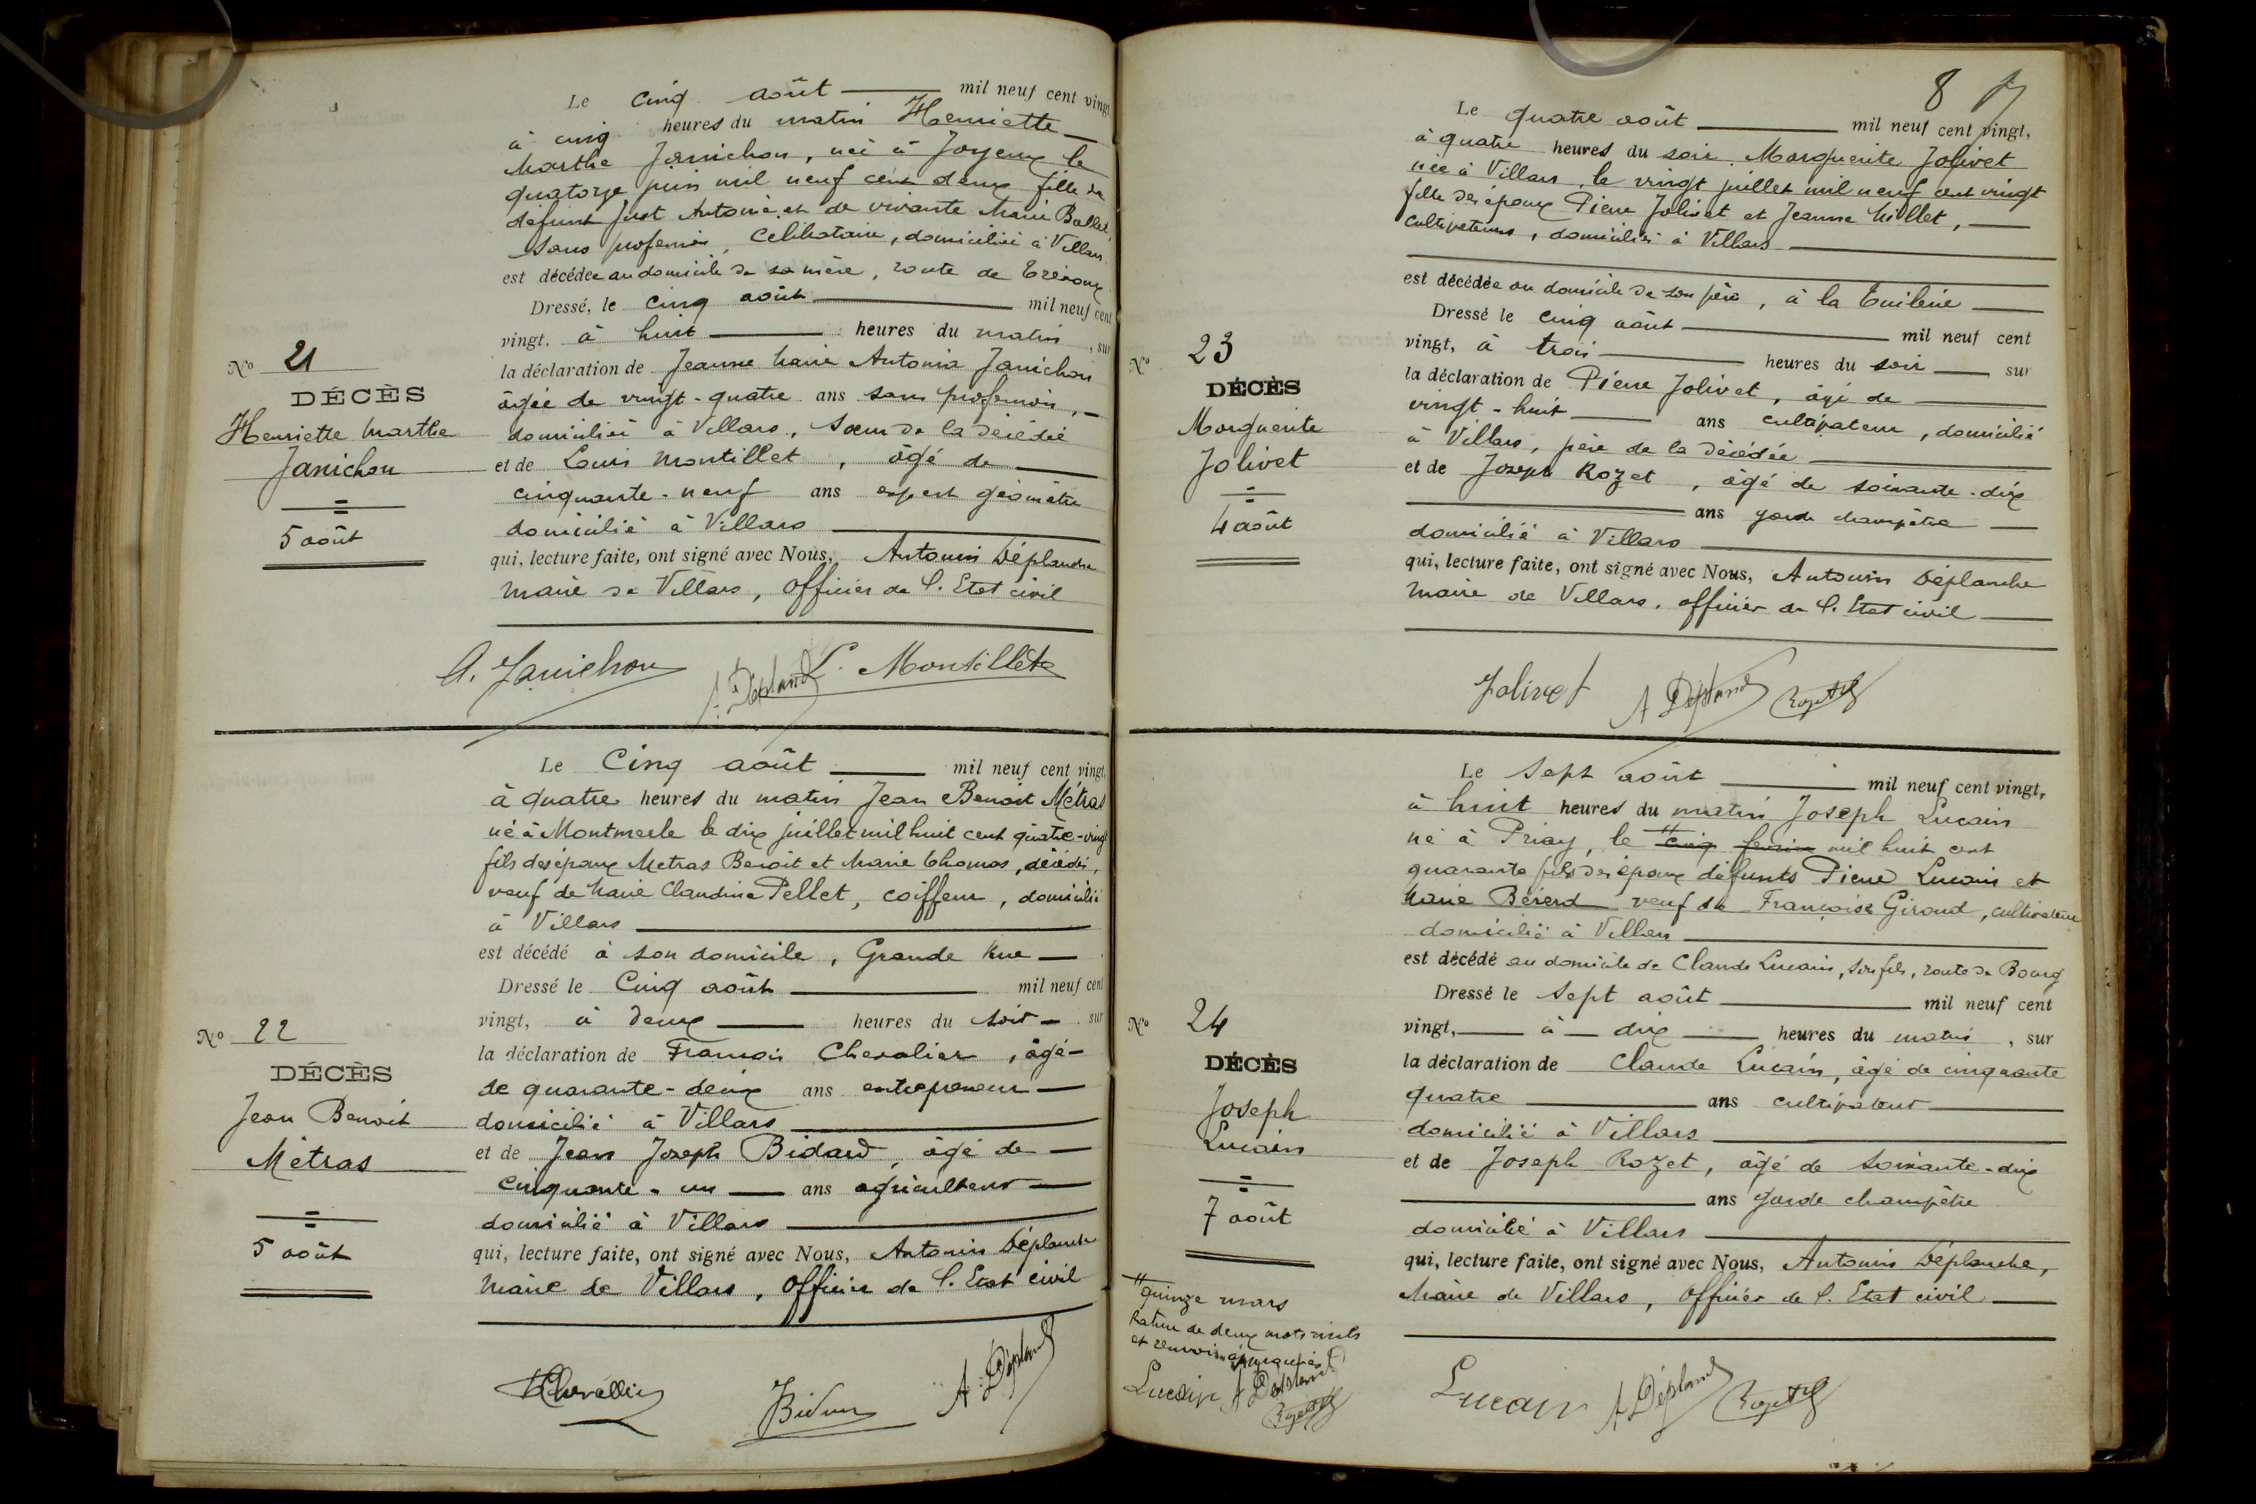 Le cinq août mil neuf cent vingt
à cinq heures du matin Henriette
Marthe Janichon, née à Joyeux le
quatorze juin mil neuf cent deux fille de
défunt Just Antoine et de vivante Marie Ballet,
sans profession, célibataire, domiciliée à Villars
est décédée au domicile de sa mère, route de Trévoux
Dressé, le cinq août mil neuf cent
vingt, à huit heures du matin, sur
la déclaration de Jeanne Marie Antonia Janichon
âgée de vingt-quatre ans sans profession,
domiciliée à Villars, sœur de la décédée
et de Louis Montillet, âgé de
cinquante-neuf ans expert géomètre
domicilié à Villars
qui, lecture faite, ont signé avec Nous, Antonin Déplanche
Maire de Villars, officier de l'Etat civil
No 21
DÉCÈS
Henriette Marthe
Janichon
5 août
A. Janichon A. Déplanche L. Montillet
Le Cinq août mil neuf cent vingt,
à quatre heures du matin Jean Benoit Métras
né à Montmerle le dix juillet mil huit cent quatre-vingt
fils des époux Metras Benoit et Marie Thomas, décédés,
veuf de Marie Claudine Pellet, coiffeur, domicilié
à Villars
est décédé à son domicile, Grande Rue
Dressé le Cinq août mil neuf cent
vingt, à deux heures du soir sur
la déclaration de François Chevalier, âgé
de quarante-deux ans entrepreneur
domicilié à Villars
et de Jean Joseph Bidard, âgé de
cinquante-un ans agriculteur
domicilié à Villars
qui, lecture faite, ont signé avec Nous, Antonin Déplanche
Maire de Villars, Officier de l'Etat civil
No 22
DÉCÈS
Jean Benoit
Métras
5 août
Chevallier Bidard A. Déplanche
8
Le quatre août mil neuf cent vingt,
à quatre heures du soir Marguerite Jolivet
née à Villars, le vingt juillet mil neuf cent vingt
fille des époux Pierre Jolivet et Jeanne Millet,
cultivateurs, domiciliés à Villars
est décédée au domicile de son père, à la Tuilerie
Dressé le cinq août mil neuf cent
vingt, à trois heures du soir sur
la déclaration de Pierre Jolivet, âgé de
vingt-huit ans cultivateur, domicilié
à Villars, père de la décédée
et de Joseph Rozet, âgé de soixante-dix
ans garde champêtre
domicilié à Villars
qui, lecture faite, ont signé avec Nous, Antonin Déplanche
Maire de Villars, officier de l'Etat civil
No 23
DÉCÈS
Marguerite
Jolivet
4 août
Jolivet A Déplanche Rozet
Le sept août mil neuf cent vingt,
à huit heures du matin Joseph Lucain
né à Priay, le cinq février mil huit cent
quarante fils des époux défunts Pierre Lucain et
Marie Bérerd veuf de Françoise Giroud, cultivateur
domicilié à Villars
est décédé au domicile de Claude Lucain, son fils, route de Bourg
Dressé le sept août mil neuf cent
vingt, à dix heures du matin, sur
la déclaration de Claude Lucain, âgé de cinquante
quatre ans cultivateur
domicilié à Villars
et de Joseph Rozet, âgé de soixante-dix
ans garde champêtre
domicilié à Villars
qui, lecture faite, ont signé avec Nous, Antonin Déplanche,
Maire de Villars, Officier de l'Etat civil
No 24
DÉCÈS
Joseph
Lucain
7 août
quinze mars
Rature de deux mots nuls
et renvoi
Lucain A Déplanche Rozet
Lucain A Déplanche Rozet